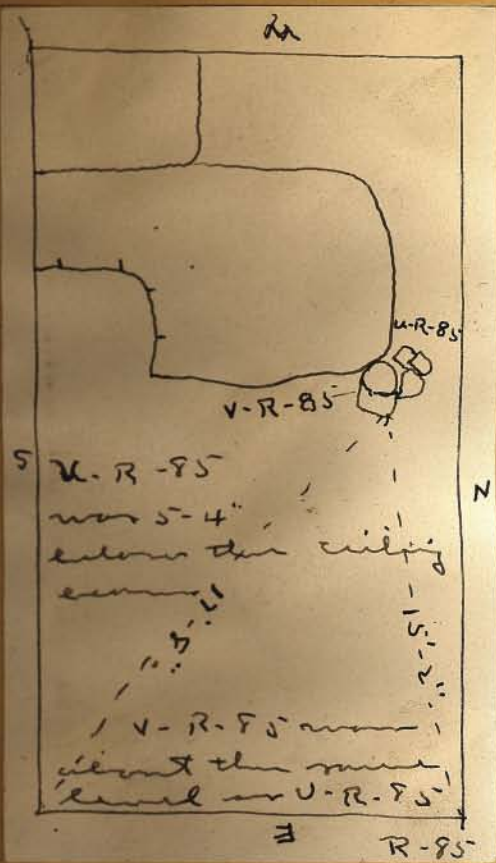 u-R-85
V-R-85
S
N
U-R-85
was 5-4"
below the
15'-2"
V-R-85 was
about the same
level as U-R-85
E
R-85